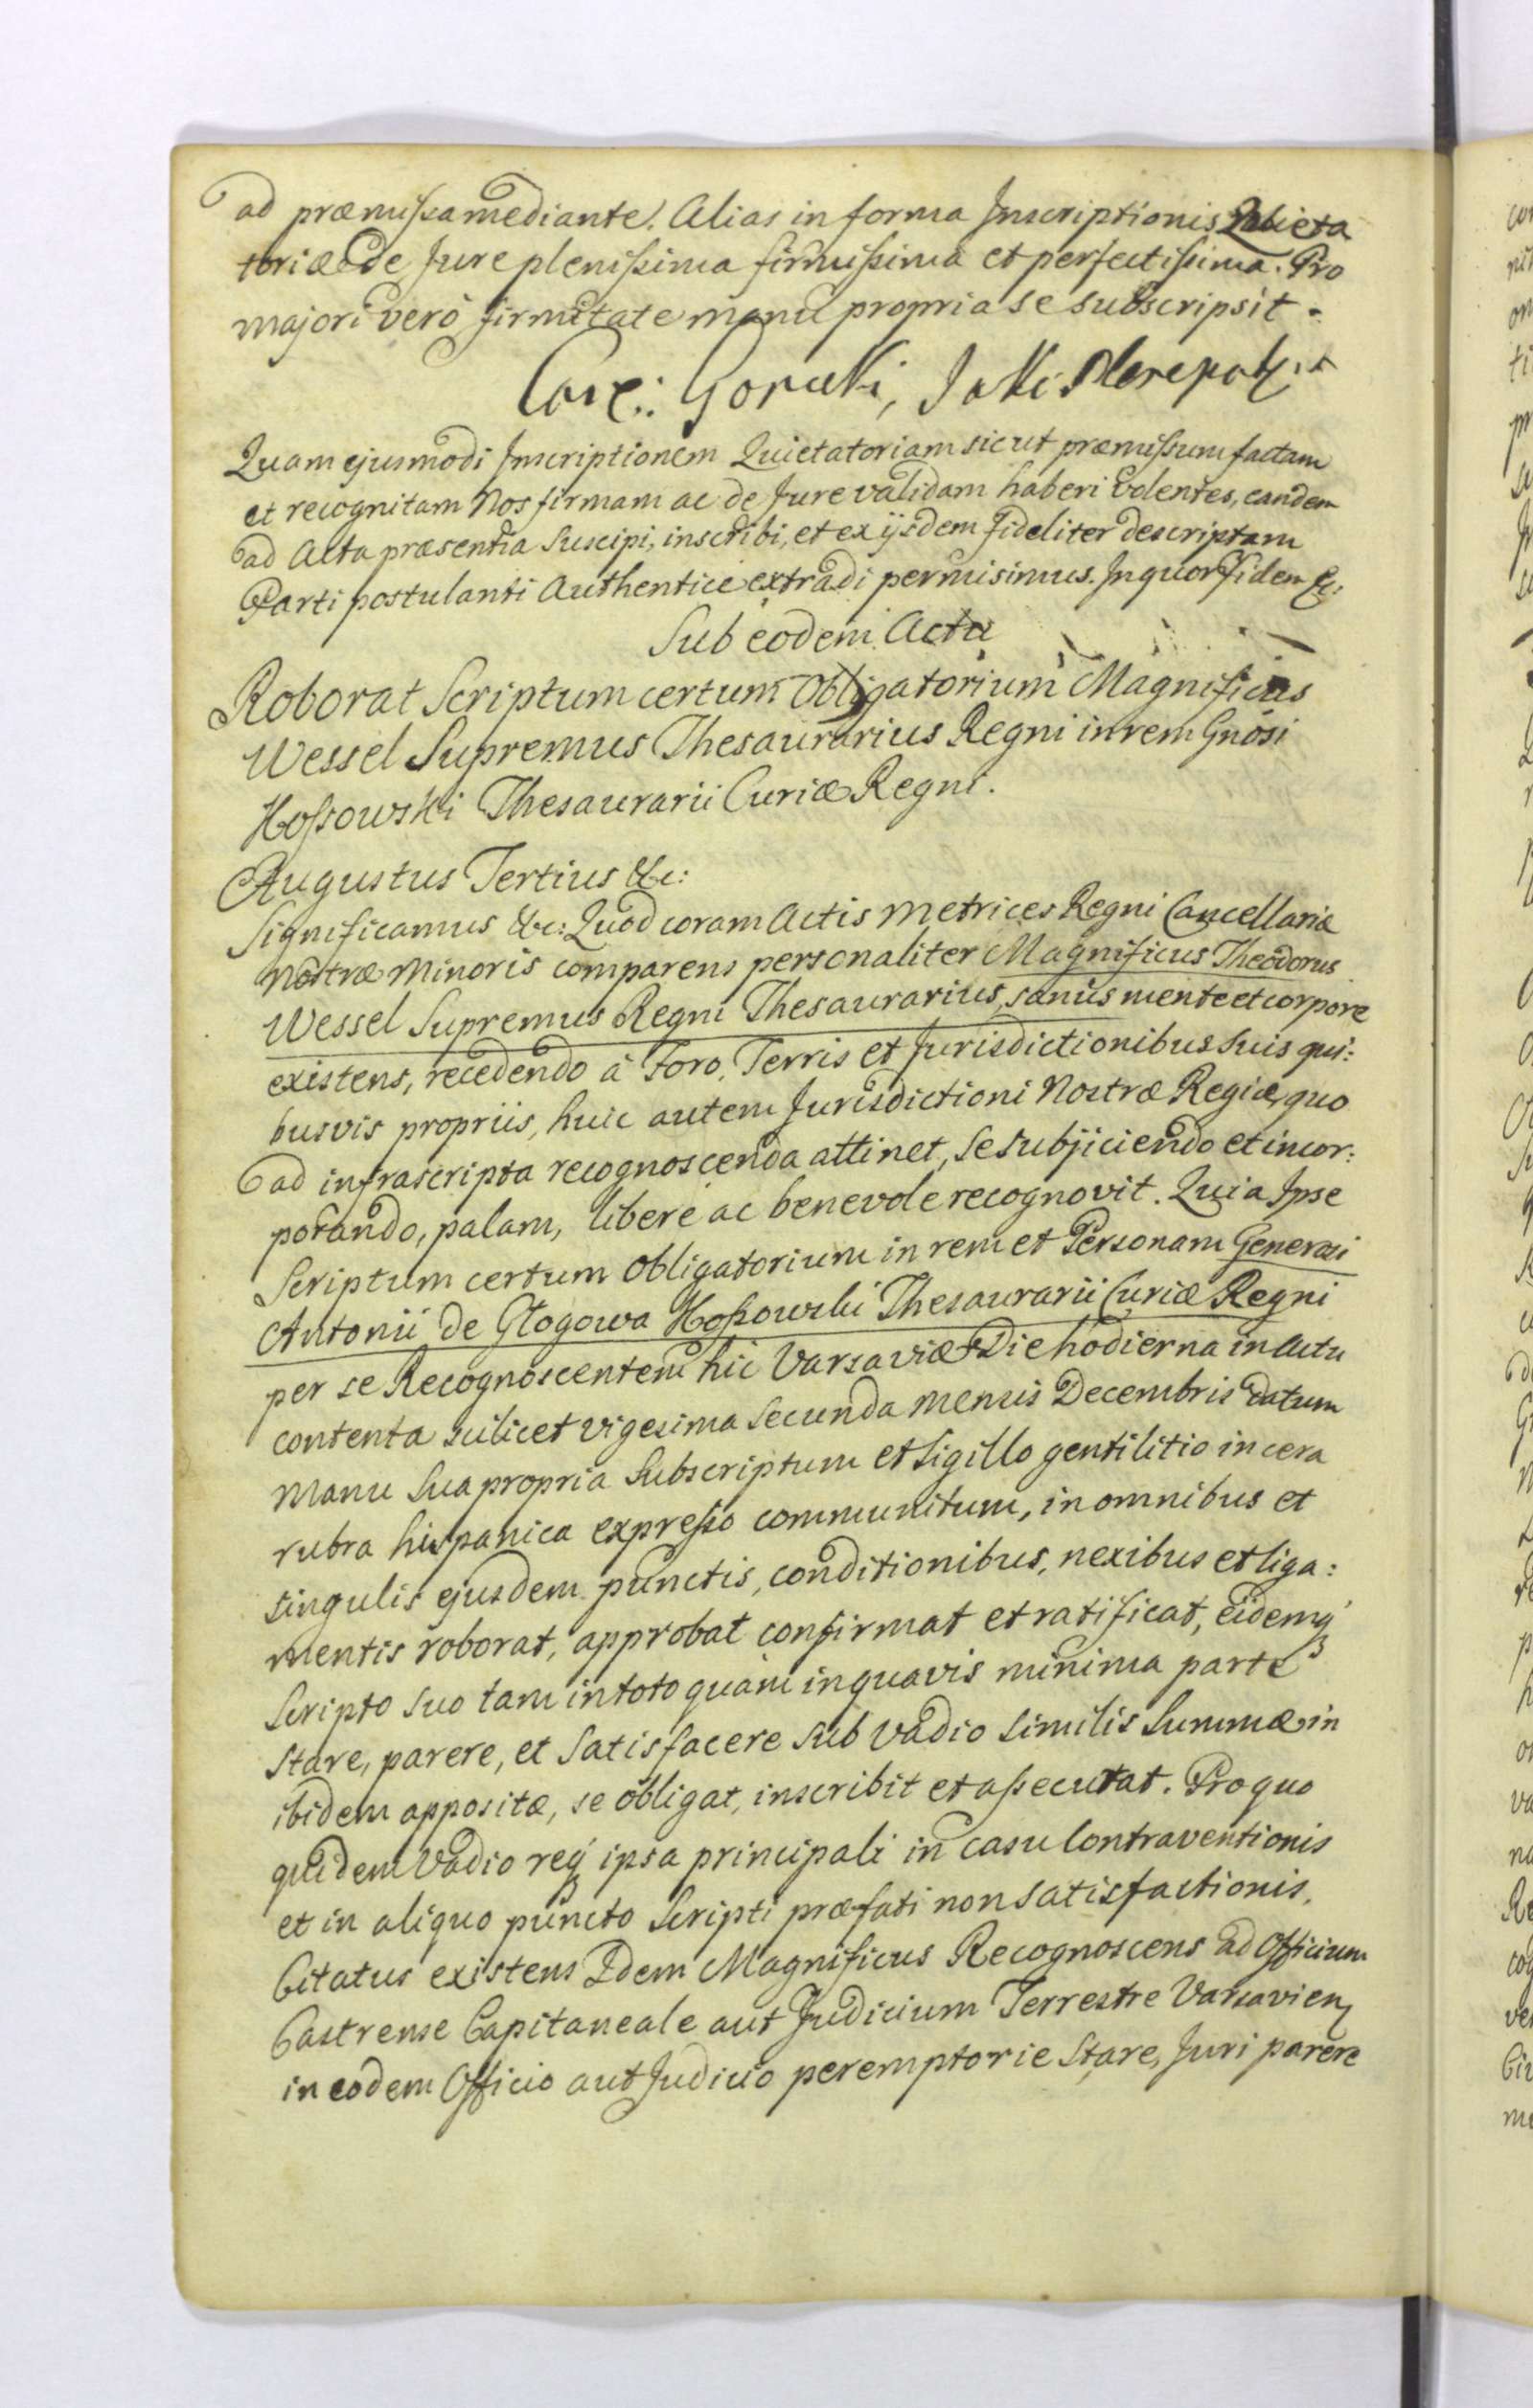 ad præmissa mediante. Alias in forma Inscriptionis Quieta
toriæ de Jure plenissima firmissima et perfectissima. Pro
majori verò firmitate manu propria se subscripsit.
Quam ejusmodi Inscriptionem Quietatoriam sicut præmissum factam
et recognitam Nos firmam ac de Jure validam haberi volentes, eandem
ad Acta præsentia suscipi, inscribi, et ex ijsdem fideliter descriptam
Parti postulanti Authentice extradi permisimus. In quor Fidem &c:
Sub eodem Actu
Roborat Scriptum certum Obligatorium Magnificus
Wessel Supremus Thesaurarius Regni in rem Gnosi
Kossowski Thesaurarii Curiæ Regni.
Augustus Tertius &c:
Significamus &c: Quod coram Actis Metrices Regni Cancellariæ
Nostræ Minoris comparens personaliter Magnificus Theodorus
Wessel Supremus Regni Thesaurarius, sanus mente et corpore
existens, recedendo à Foro, Terris et Jurisdictionibus suis qui:
busvis propriis, huic autem Jurisdictioni Nostræ Regiæ, quo
ad infrascripta recognoscenda attinet, se subjiciendo et incor:
porando, palam, liberè ac benevole recognovit. Quia Ipse
Scriptum certum Obligatorium in rem et Personam Generosi
Antonii de Głogowa Kossowski Thesaurarii Curiæ Regni
per se Recognoscentem hic Varsaviæ Die hodierna in Actu
contenta scilicet vigesima secunda mensis Decembris datum
manu sua propria subscriptum et sigillo gentilitio in cera
rubra hispanica expresso communitum, in omnibus et
singulis ejusdem punctis, conditionibus, nexibus et liga:
mentis roborat, approbat confirmat et ratificat, eidemq
scripto suo tam in toto quàm in quavis minima parte
stare, parere, et satisfacere sub vadio similis summæ in
ibidem appositæ, se obligat, inscribit et assecurat. Pro quo
quidem vadio req ipsa principali in casu contraventionis
et in aliquo puncto scripti præfati non satisfactionis,
Citatus existens Idem Magnificus Recognoscens ad Officium
Castrense Capitaneale aut Judicium Terrestre Varsavien
in eodem Officio aut Judicio peremptorie stare, Juri parere